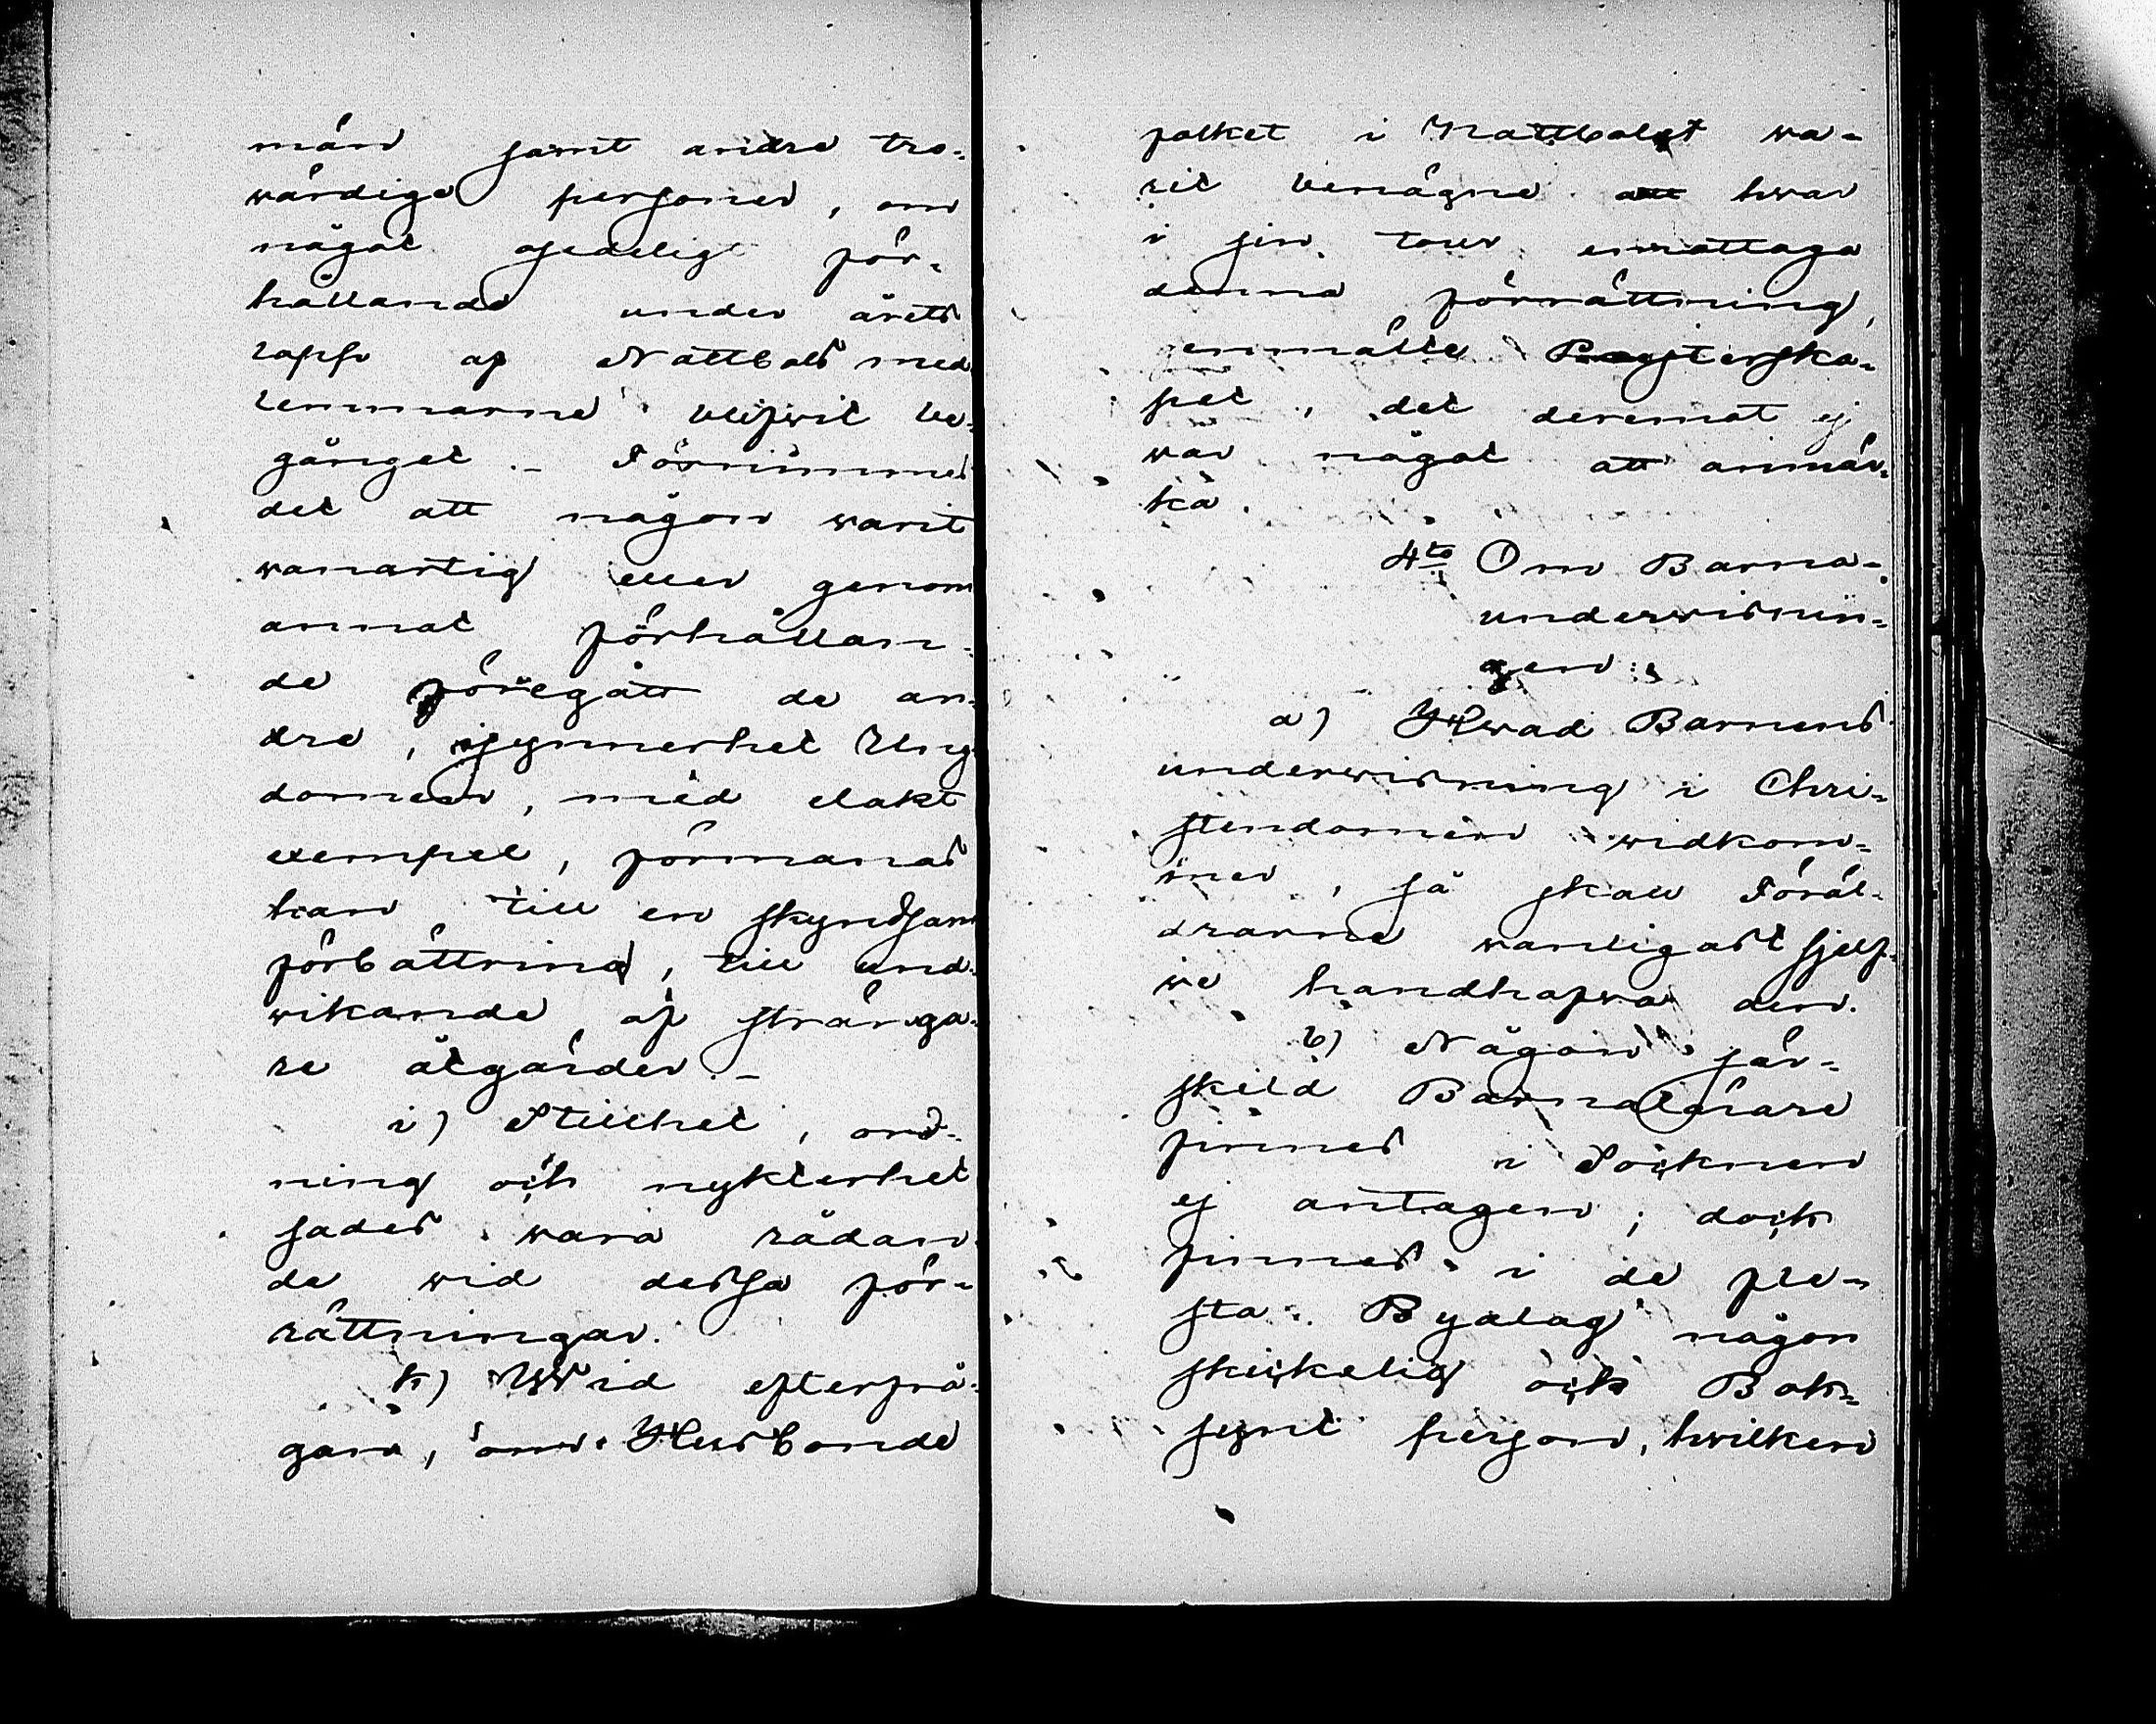 män samt andre tro-
wärdige personer, om
något osedeligt för-
hållande under årets
lopp af Rotebols med
lemmarne blifvit be-
gånget. – Förnimmes
det att någon warit
wanartig eller genom
annat förhållan-
de föregått de an-
dre, isynnerhet Ung
domen, med elakt
exempel, förmanas
han till en skyndsam
förbättring, till und-
wikande af stränga-
re åtgärder. –
i) Stillhet, ord-
ning och nykterhet
sades wara rådan-
de wid dessa för-
rättningar.
k) Wid efterfrå-
gan, om Husbonde
folket i Nattbolet wa-
rit benägne att hwar
i sin tour emottaga
denna förrättning,
genmälte Presterska-
pet, det deremot ej
war något att anmär-
ka.
4to Om Barna-
underwisnin-
gen.
a) Hwad Barnens
underwisning i Chri-
stendomen widkom-
mer, så skall Föräl-
drarne wanligast sjelf-
we handhafwa den.
b) Någon sär-
skild Barnalärare
finnes i Socknen
ej antagen; dock
finnes i de fle-
sta Byalag någon
skickelig och Bok-
synt person, hwilken